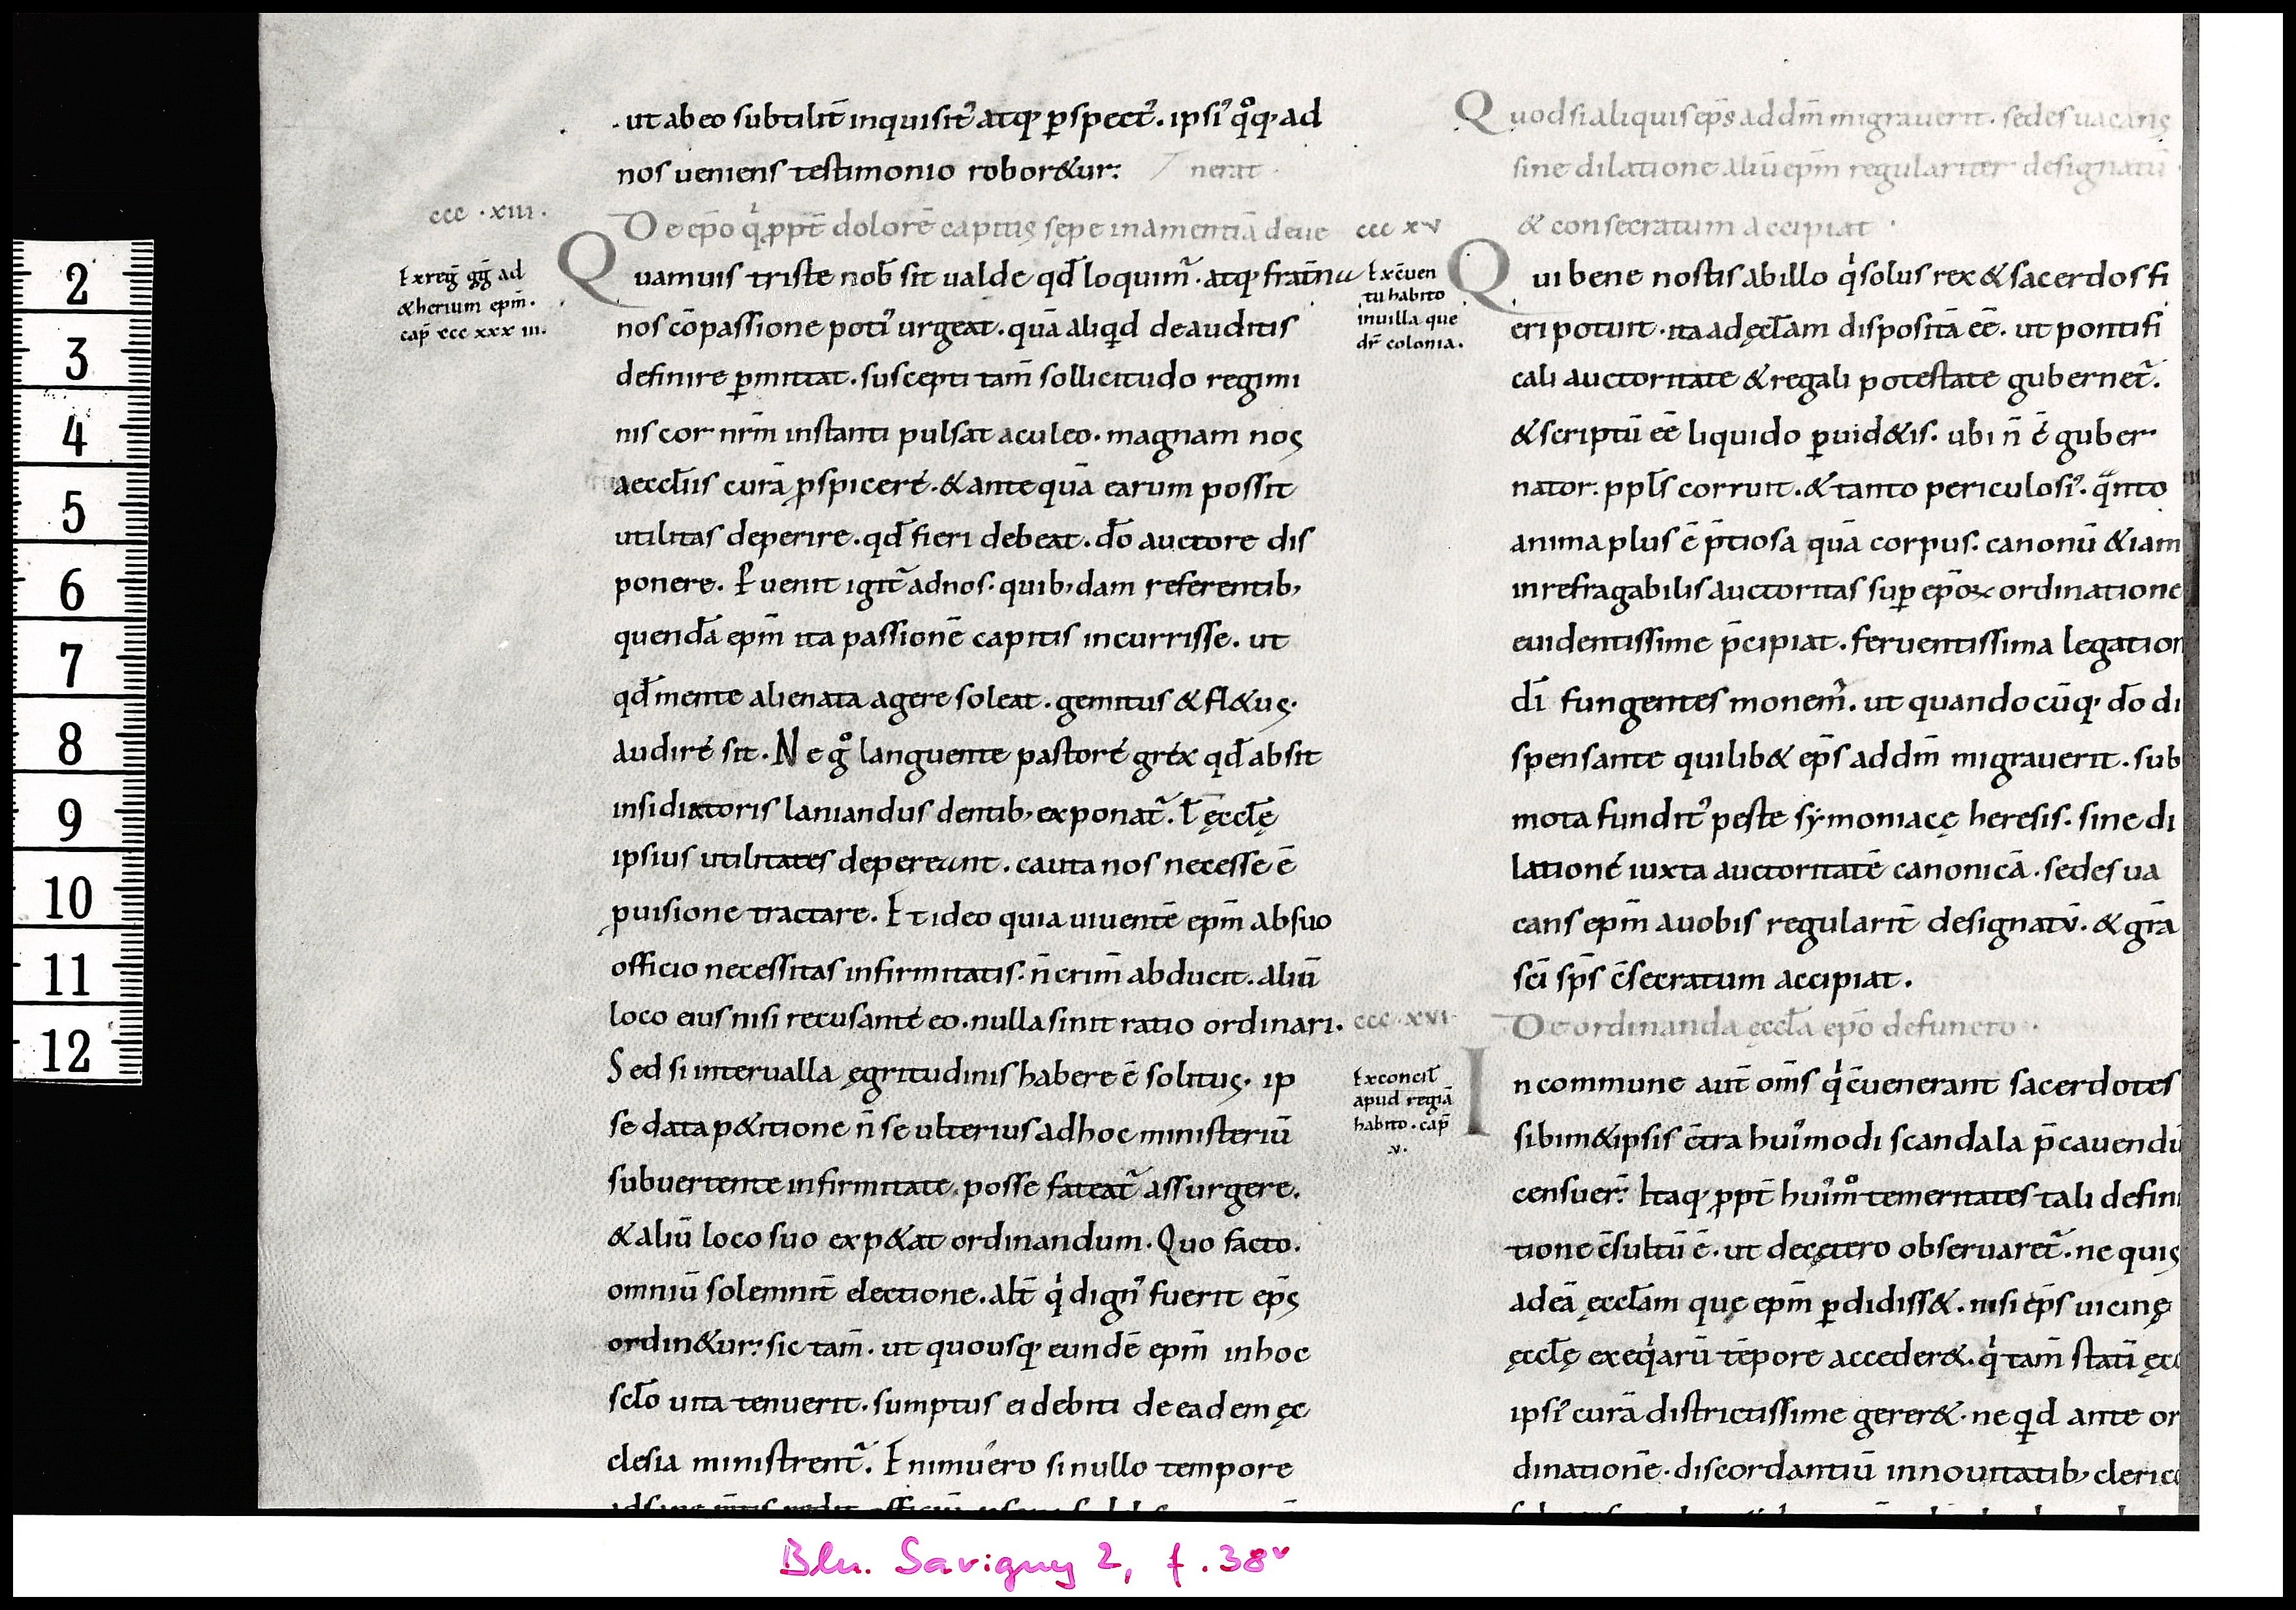 ut ab eo subtilit̄ inquisit᷒ atq; ꝑspect᷒. ipsi᷒ qͦq; ad
nos ueniens testimonio robor&ur:
nerat
ccc . xiii .
De ep̄o qͥ ꝓpt̄ dolorē capitis sępe in amentiā deue
Ex reḡ gḡ ad
&herium ep̄m.
cap̄ ccc xxx iii.
Quamuis triste nob̄ sit ualde qd̄ loquim᷒. atq; frat̄na
nos cōpassione poti᷒ urgeat. quā aliqd de auditis
definire ꝑmittat. suscepti tam̄ sollicitudo regimi
nis cor nr̄m instanti pulsat aculeo. magnam nos
aeccl̄iis curā ꝓspicere. & ante quā earum possit
utilitas deperire. qd̄ fieri debeat. dō auctore dis
ponere. Puenit igit᷒ ad nos. quib; dam referentib;
quendā ep̄m ita passionē capitis incurrisse. ut
qd̄ mente alienata agere soleat. gemitus & fl&us
audire sit. Ne gͦ languente pastore grex qd̄ absit
insidiatoris laniandus dentib; exponat᷒. ł ęccl̄ę
ipsius utilitates depereant. cauta nos necesse ē
ꝓuisione tractare. Et ideo quia uiuentē ep̄m ab suo
officio necessitas infirmitatis. n̄ crim̄ abducit. aliū
loco eius nisi recusante eo. nulla sinit ratio ordinari.
Sed si interualla ęgritudinis habere ē solitus. ip
se data p&itione n̄ se ulterius ad hoc ministeriū
subuertente infirmitate. posse fateat᷒ assurgere.
& aliū loco suo exp&at ordinandum. Quo facto.
omniū solemnit̄ electione. alt̄ qͥ dign᷒ fuerit ep̄s
ordin&ur: sic tam̄. ut quousq; eundē ep̄m in hoc
scl̄o uita tenuerit. sumptus ei debiti de eadem ęc
clesia ministrent᷒. Enimuero si nullo tempore
Quod si aliquis ep̄s ad dm̄ migrauerit. sedes uacans
sine dilatione aliū ep̄m regulariter designatū
& consecratum accipiat .
ccc xv
Ex cuen
tu habito
in uilla que
dr̄ colonia.
Qui bene nostis ab illo qͥ solus rex & sacerdos fi
eri potuit. ita ad ęccl̄am dispositā eē. ut pontifi
cali auctoritate & regali potestate gubernet᷒.
& scriptū eē liquido ꝑuid&is. ubi n̄ ē guber
nator. ppl̄s corruit. & tanto periculosi᷒. qᵃnto
anima plus ē p̄tiosa quā corpus. canonū & iam
inrefragabilis auctoritas sup ep̄oꝝ ordinatione
euidentissime p̄cipiat. feruentissima legation
dī fungentes monem᷒. ut quandocūq; dō di
spensante quilib& ep̄s ad dm̄ migrauerit. sub
mota fundit᷒ peste symoniacę heresis. sine di
latione iuxta auctoritatē canonicā. sedes ua
cans ep̄m a uobis regularit̄ designatū. & gr̄a
sc̄i sp̄s c̄secratum accipiat.
ccc . xvi
De ordinanda ęccl̄a ep̄o defuncto .
Ex concil̄
apud regiā
habito. cap̄
.v.
In commune aut̄ om̄s qͥ c̄uenerant sacerdotes
sibim&ipsis c̄tra hui᷒modi scandala p̄cauendū
censuer̄. Itaq; ꝓpt̄ hui᷒mͦ temeritates tali defini
tione c̄sultū ē. ut decętero obseruaret᷒. ne quis
ad eā ęccl̄am quę ep̄m ꝑdidiss&. nisi ep̄s uicinę
ęccl̄ę exeqͥarū tēpore acceder&. qͥ tam̄ statī ęcc
ipsi᷒ curā districtissime gerer&. ne qd ante or
dinationē. discordantiū in nouitatib; cleric
2
3
4
5
6
7
8
9
10
11
12
Bln. Savigny 2, f. 38v